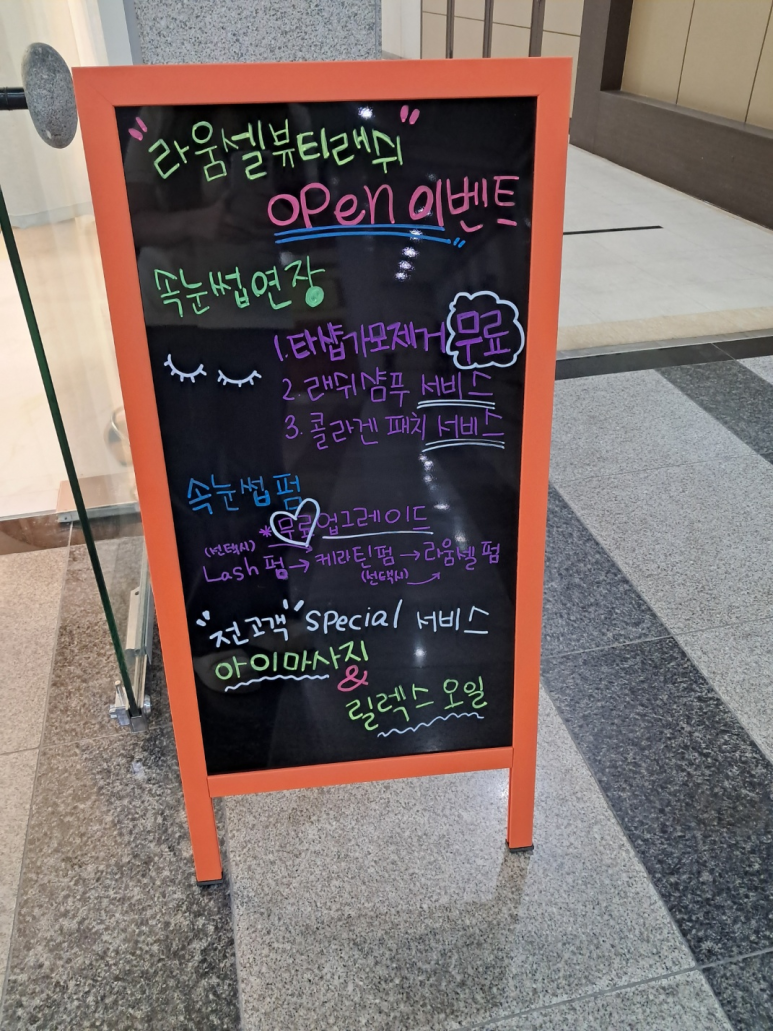 "라움셀뷰티래쉬"
open 이벤트
속눈썹연장
1. 타샵가모제거 무료
2. 래쉬샴푸 서비스
3. 콜라겐 패치 서비스
속눈썹펌
*무료업그레이드
(선택시)
Lash 펌→케라틴펌→라움셀펌
(선택시)
"전고객" special 서비스
아이마사지
&
릴렉스 오일